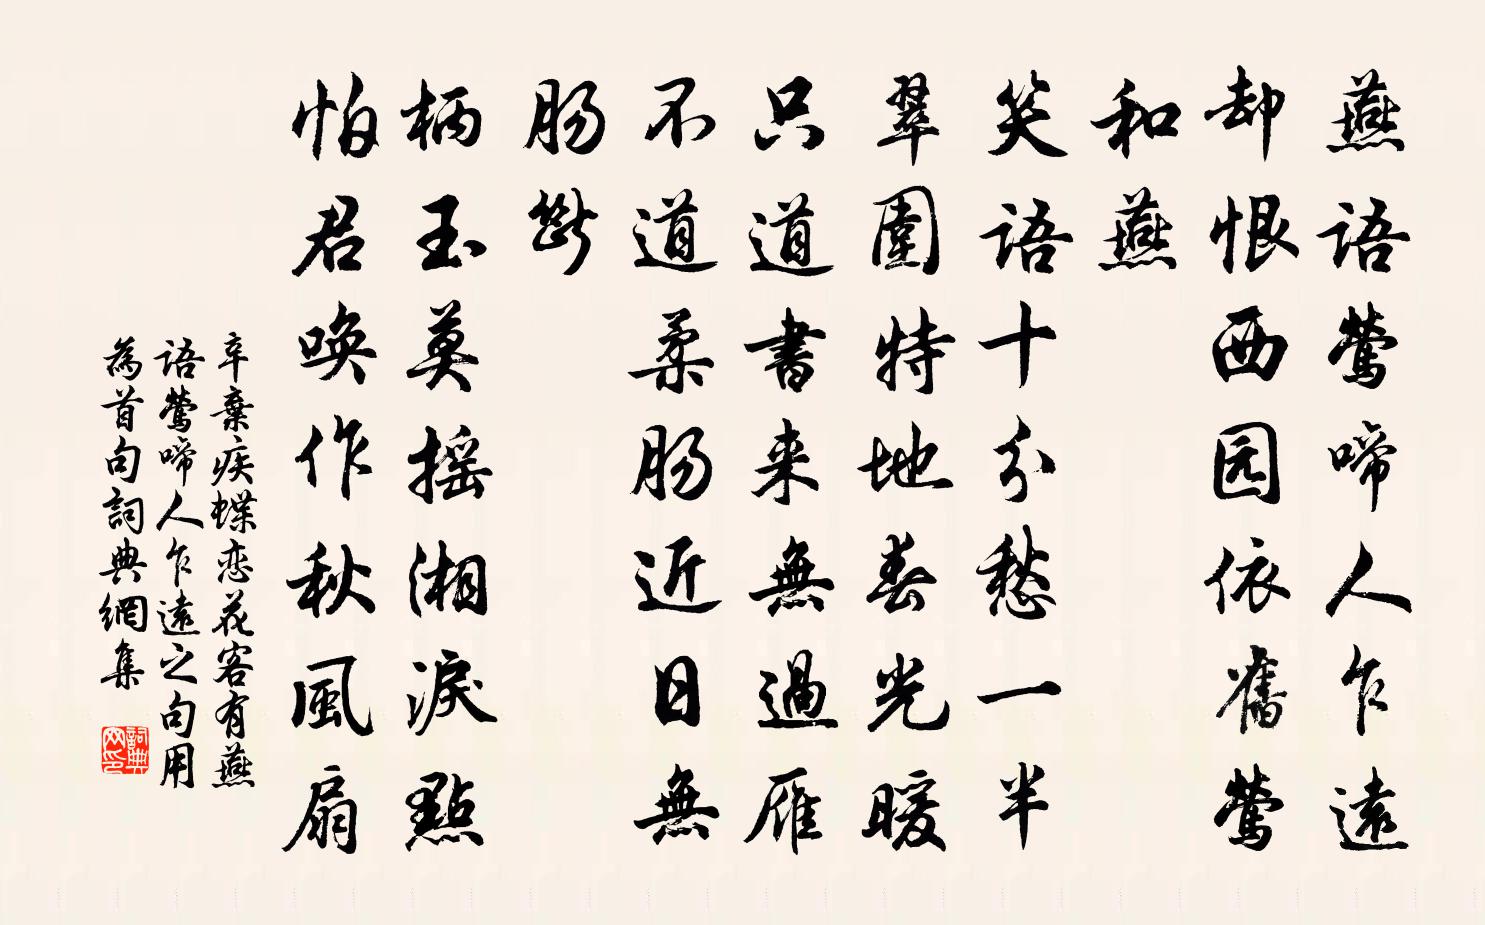 燕语鶯啼人乍遠
却恨西园依舊鶯
和燕
笑语十分愁一半
翠圍特地春光暖
只道書来無過雁
不道柔肠近日無
肠斷
柄玉莫摇湘淚點
怕君唤作秋風扇
辛棄疾蝶恋花客有燕
语鶯啼人乍遠之句用
為首句詞典網集
詞典
网印